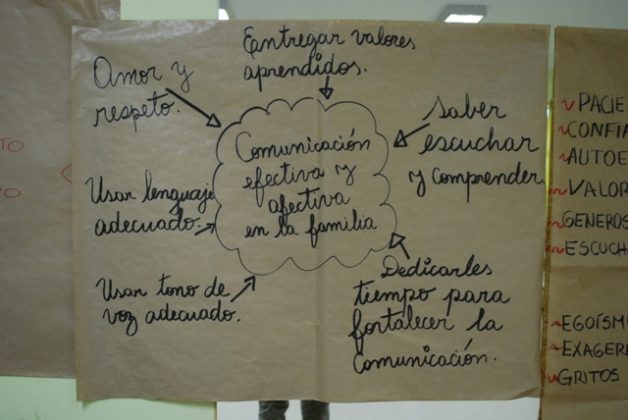 Entregar valores
aprendidos.
Amor y
respeto.
Saber
escuchar
y comprender
Comunicación
efectiva y
afectiva
en la familia
Usar lenguaje
adecuado.
Usar tono de
voz adecuado.
Dedicarles
tiempo para
fortalecer la
comunicación.
ESCUCH
EGOÍSM
EXAGER
GRITOS
PACIE
CONFI
AUTOE
VALOR
GENEROS
TO